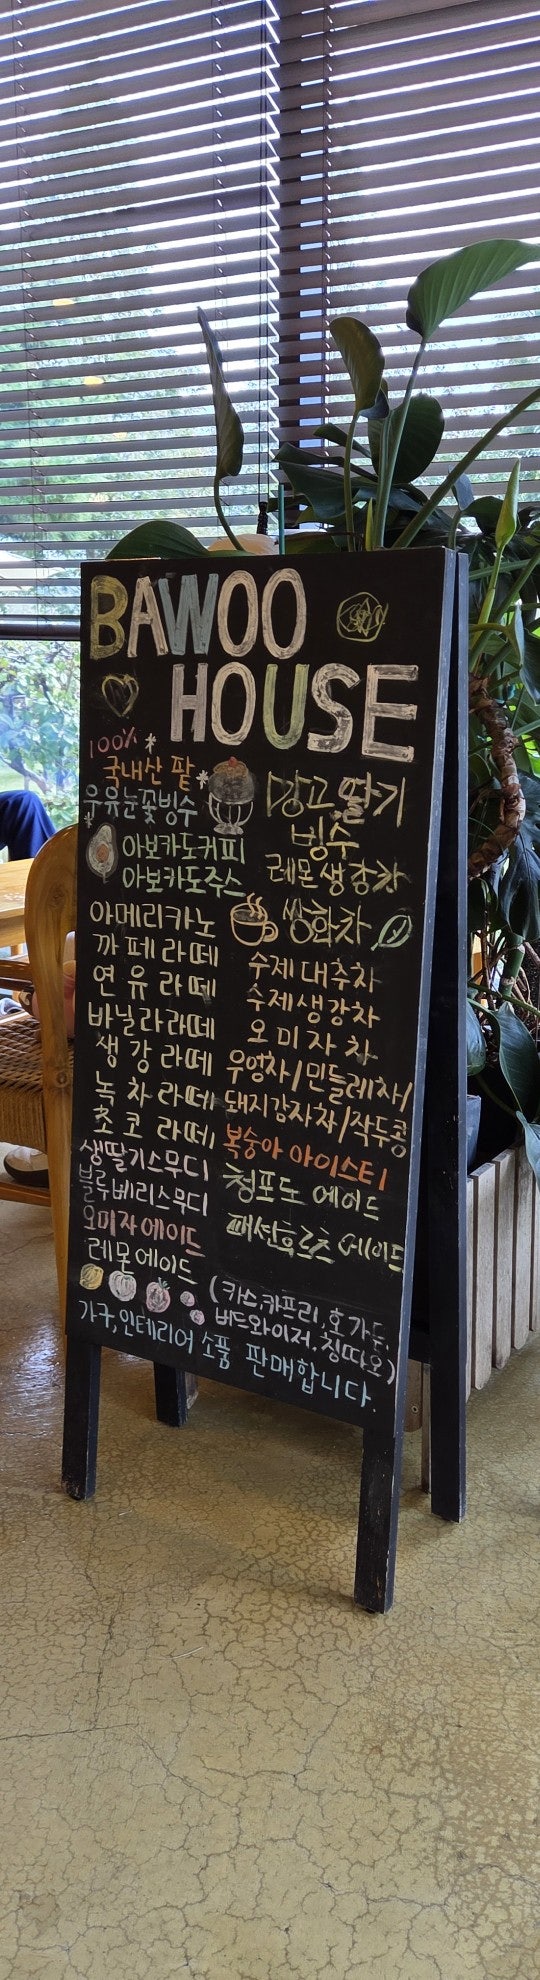 BAWOO
HOUSE
100%
국내산 팥
우유눈꽃빙수
아보카도커피
아보카도주스
아메리카노
까페라떼
연유라떼
바닐라라떼
생강라떼
녹차라떼
쵸코라떼
생딸기스무디
블루베리스무디
오미자에이드
레몬에이드
망고 딸기
빙수
레몬생강차
쌍화차
수제대추차
수제생강차
오미자차
우엉차/민들레차/
돼지감자차/작두콩
복숭아 아이스티
청포도 에이드
패션후르츠 에이드
(카스,카프리,호가든,
버드와이저,칭따오)
가구,인테리어 소품 판매합니다.